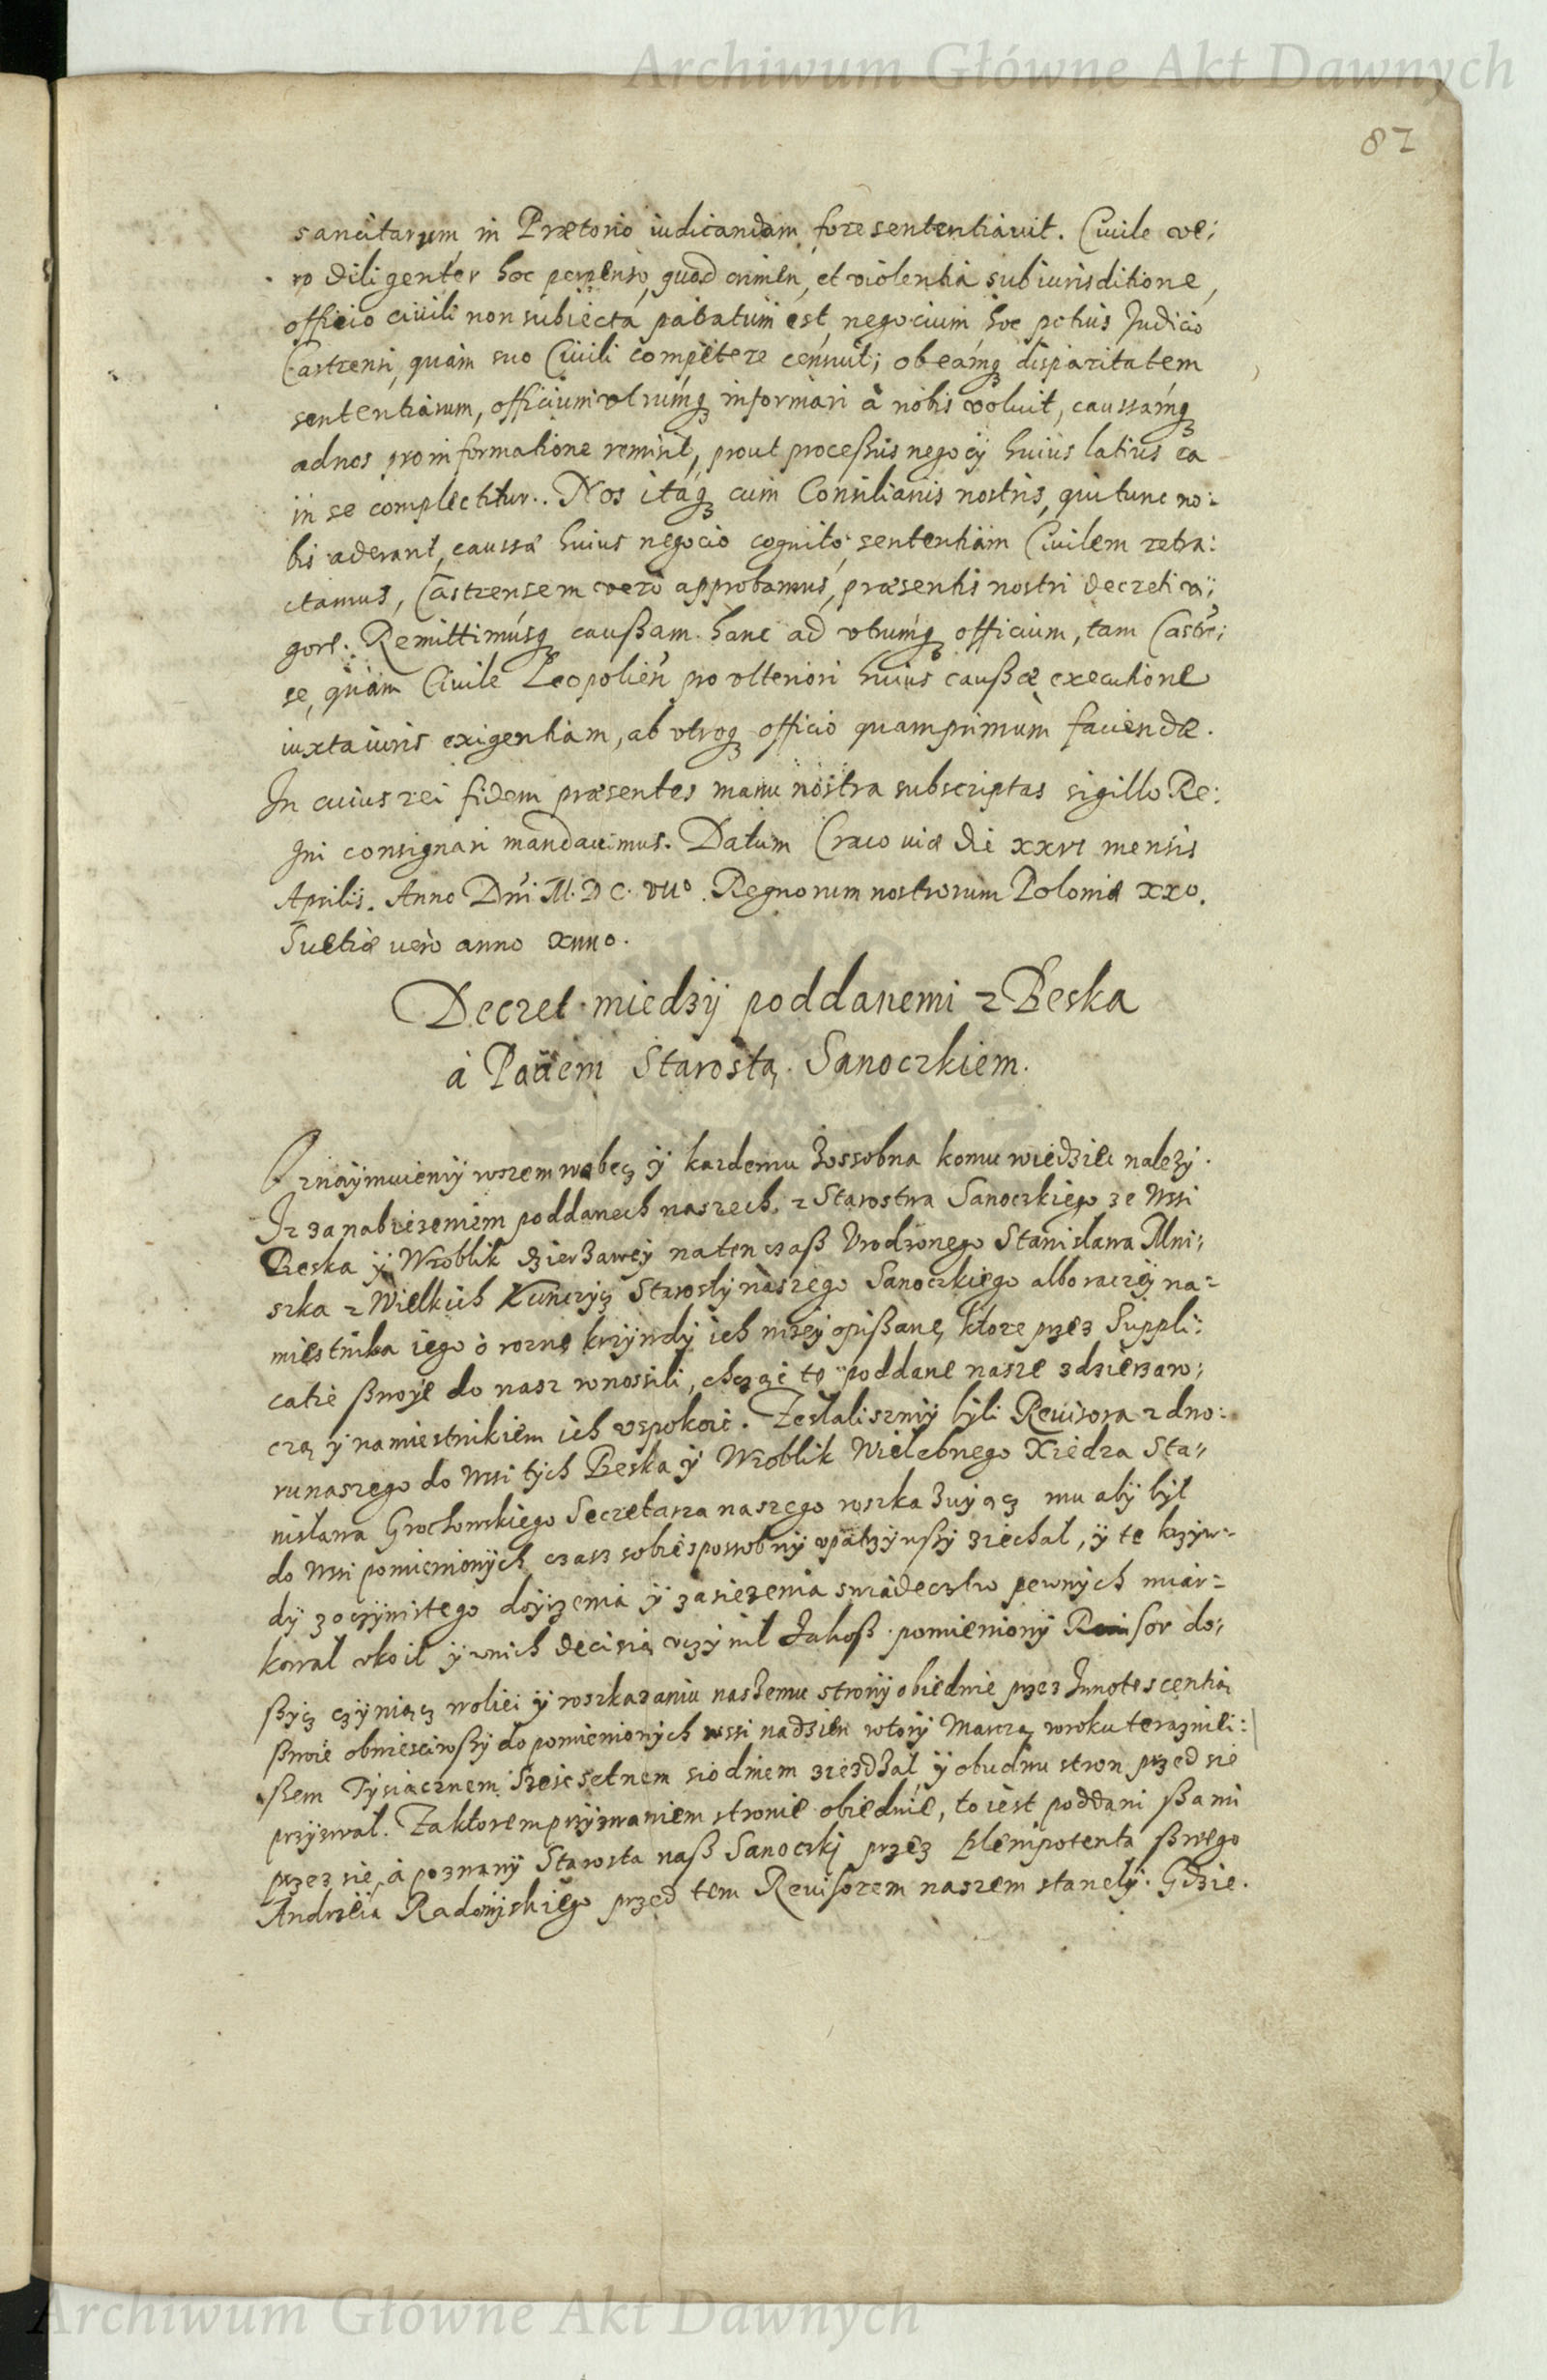 Archiwum Główne Akt Dawnych
87
sancitarum in Prætorio iudicandam fore sententiauit. Ciuile ve:
ro diligenter hoc perpenso, quod crimen, et violentia sub iurisditione,
officio ciuili non subiecta patratum est, negocium hoc potius Judicio
Castrensi, quam suo Ciuili competere censuit; ob eamq disparitatem
sententiarum, officium vtrumq informari à nobis voluit, caussamq
ad nos pro informatione remisit, prout processus negocÿ huius latius ea
in se complectitur. Nos itaq cum Consiliariis nostris, qui tunc no:
bis aderant, caussæ huius negocio cognito sententiam Ciuilem retra:
ctamus, Castrensem vero approbamus, præsentis nostri decreti vi:
gore. Remittimusq caußam hanc ad vtrumq officium, tam Castrē:
se, quam Ciuile Leopolień pro vlteriori huius caußæ executione
iuxta iuris exigentiam, ab vtroq officio quamprimum faciendæ.
In cuius rei fidem præsentes manu nostra subscriptas sigillo Re:
gni consignari mandauimus. Datum Cracouiæ die xxvi mensis
Aprilis. Anno Dni M.DC.VIIo. Regnorum nostrorum Poloniæ xxo.
Suetiæ vero anno xiiiio.
Decret miedzÿ poddanemi z Beska
à Panem Starostą Sanoczkiem.
Oznaÿmuiemÿ wszem wobec ÿ kazdemu zossobna komu wiedziec nalezÿ.
Jz za nabiezeniem poddanech naszech z Starostwa Sanoczkiego ze wsi
Beska ÿ Wroblik dzierzaweÿ natenczaß Vrodzonego Stanislawa Mni:
szka z Wielkich Kunczÿcz Starostÿ naszego Sanoczkiego albo raczeÿ na:
miestnika iego ò rozne krzÿwdÿ ich nizeÿ opißane, ktore przez Suppli:
catie ßwoÿe do nasz wnossili, chcąc te poddane nasze z dzierzaw:
czą ÿ namiestnikiem ich vspokoic. Zeslaliszmÿ bÿli Reuisora z dwo:
ru naszego do wsi tÿch Beska ÿ Wroblik Wielebnego Xiedza Sta:
nislawa Grochowskiego Secretarza naszego roszkazuÿącz mu abÿ bÿl
do wsi pomienionÿch czasz sobie sposobnÿ vpatrzÿwßÿ ziechal, ÿ te krzÿw:
dÿ z oczÿwistego doÿrzenia ÿ zasiezenia swiadecztw pewnÿch miar:
kowal vkoil ÿ wnich decisią vczÿnil Jakoß pomienionÿ Reuisor do:
ßÿcz czÿniącz woliei ÿ roszkazaniu naszemu stronÿ obiedwie przez Innotescentią
ßwoie obwiesciwßÿ do pomienionÿch wssi na dzien wtorÿ Marca w roku teraznie:
ßem Tÿsiącznem Szescsetnem siodmem ziezdzal ÿ obudwu stron przed sie
przÿzwal. Za ktorem przÿzwaniem stronie obiedwie, to iest poddani ßami
przez sie, à pozwanÿ Starosta naß Sanoczki przez Plenipotenta ßwego
Andrzeia Radoÿskiego przed tem Reuisorem naszem stanelÿ. Gdzie.
Archiwum Główne Akt Dawnych